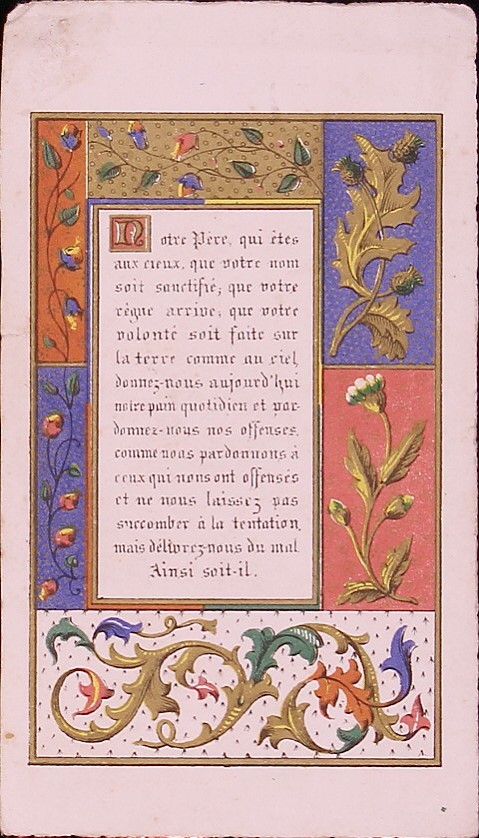 Notre Père, qui êtes
aux cieux, que votre nom
soit sanctifié; que votre
règne arrive; que votre
volonté soit faite sur
la terre comme au ciel,
donnez-nous aujourd'hui
notre pain quotidien et par-
donnez-nous nos offenses,
comme nous pardonnons à
ceux qui nous ont offensés
et ne nous laissez pas
succomber à la tentation,
mais délivrez-nous du mal
Ainsi soit-il.